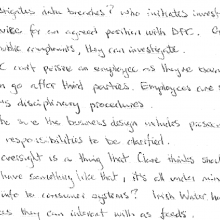 stigates data breaches? who initiates invest
vides for an agreed position with DPC. On
public complaints, they can investigate.
C can't pursue an employee as they're
n go after third parties. Employees are
s disciplinary procedures.
the sure the business design includes
responsibilities to be clarified.
oversight is a thing that Clare thinks shoul
have something like that, it's all under
into to consumer systems? Irish Water
as they can interact with as feeds.